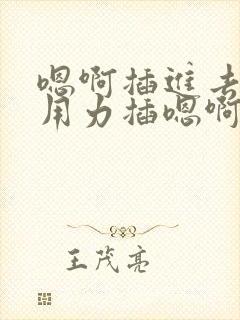 嗯啊插进去
用力插嗯啊
王茂亮